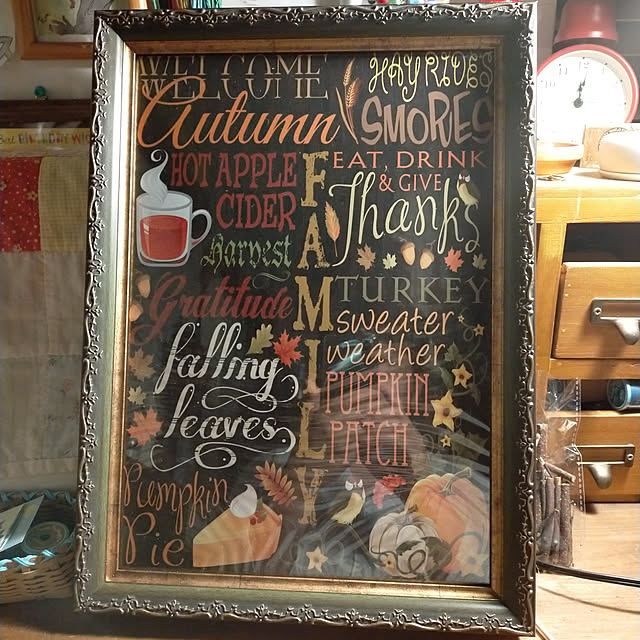 WELCOME
Autumn
HAY RIDES
SMORES
HOT APPLE
CIDER
Harvest
Gratitude
falling
leaves
Pumpkin
Pie
FAMILY
EAT, DRINK
& GIVE
Thanks
TURKEY
sweater
weather
PUMPKIN
PATCH